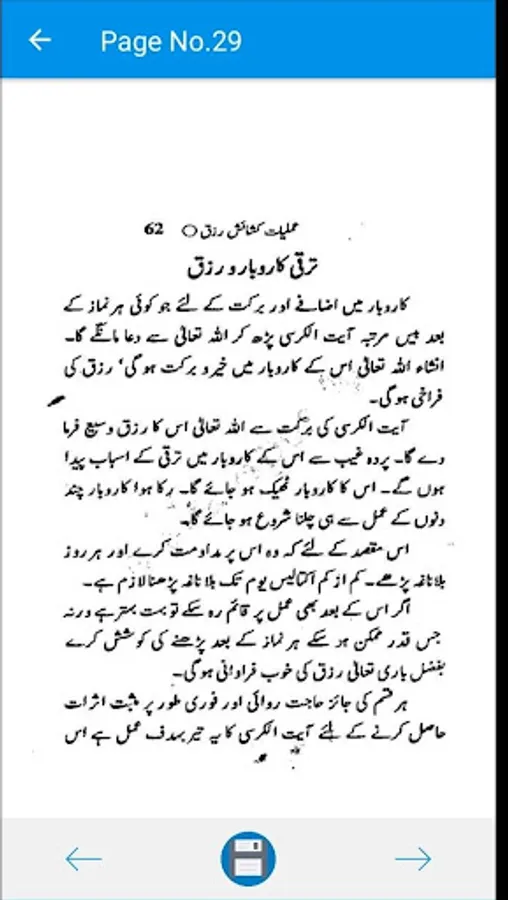 Page No.29
عملیات کشائش رزق ○ 62
ترقی کاروبار و رزق
کاروبار میں اضافے اور برکت کے لئے جو کوئی ہر نماز کے
بعد بیس مرتبہ آیت الکرسی پڑھ کر اللہ تعالیٰ سے دعا مانگے گا۔
انشاء اللہ تعالیٰ اس کے کاروبار میں خیر و برکت ہو گی‘ رزق کی
فراخی ہو گی۔
آیت الکرسی کی برکت سے اللہ تعالیٰ اس کا رزق وسیع فرما
دے گا۔ پردہ غیب سے اس کے کاروبار میں ترقی کے اسباب پیدا
ہوں گے۔ اس کا کاروبار ٹھیک ہو جائے گا۔ رکا ہوا کاروبار چند
دنوں کے عمل سے ہی چلنا شروع ہو جائے گا۔
اس مقصد کے لئے کہ وہ اس پر مداومت کرے اور ہر روز
بلاناغہ پڑھے۔ کم از کم اکتالیس یوم تک بلا ناغہ پڑھنا لازم ہے۔
اگر اس کے بعد بھی عمل پر قائم رہ سکے تو بہت بہتر ہے ورنہ
جس قدر ممکن ہو سکے ہر نماز کے بعد پڑھنے کی کوشش کرے
بفضل باری تعالیٰ رزق کی خوب فراوانی ہو گی۔
ہر قسم کی جائز حاجت روائی اور فوری طور پر مثبت اثرات
حاصل کرنے کے لئے آیت الکرسی کا یہ تیر بہدف عمل ہے اس